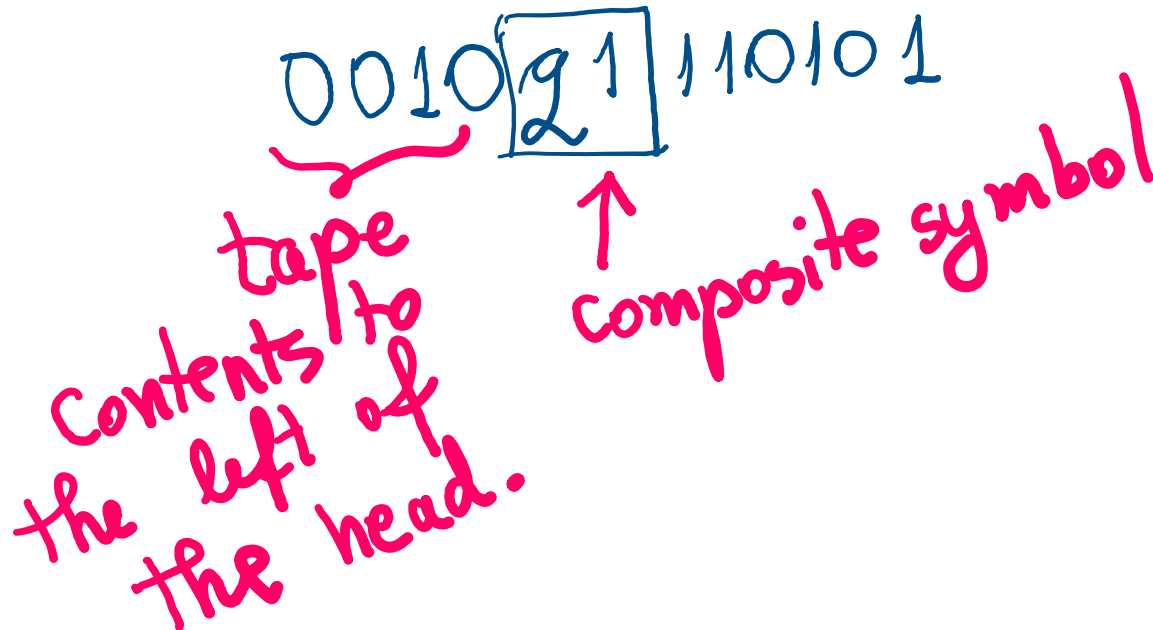 0010 q1 110101
tape
contents to
the left of
the head.
composite symbol